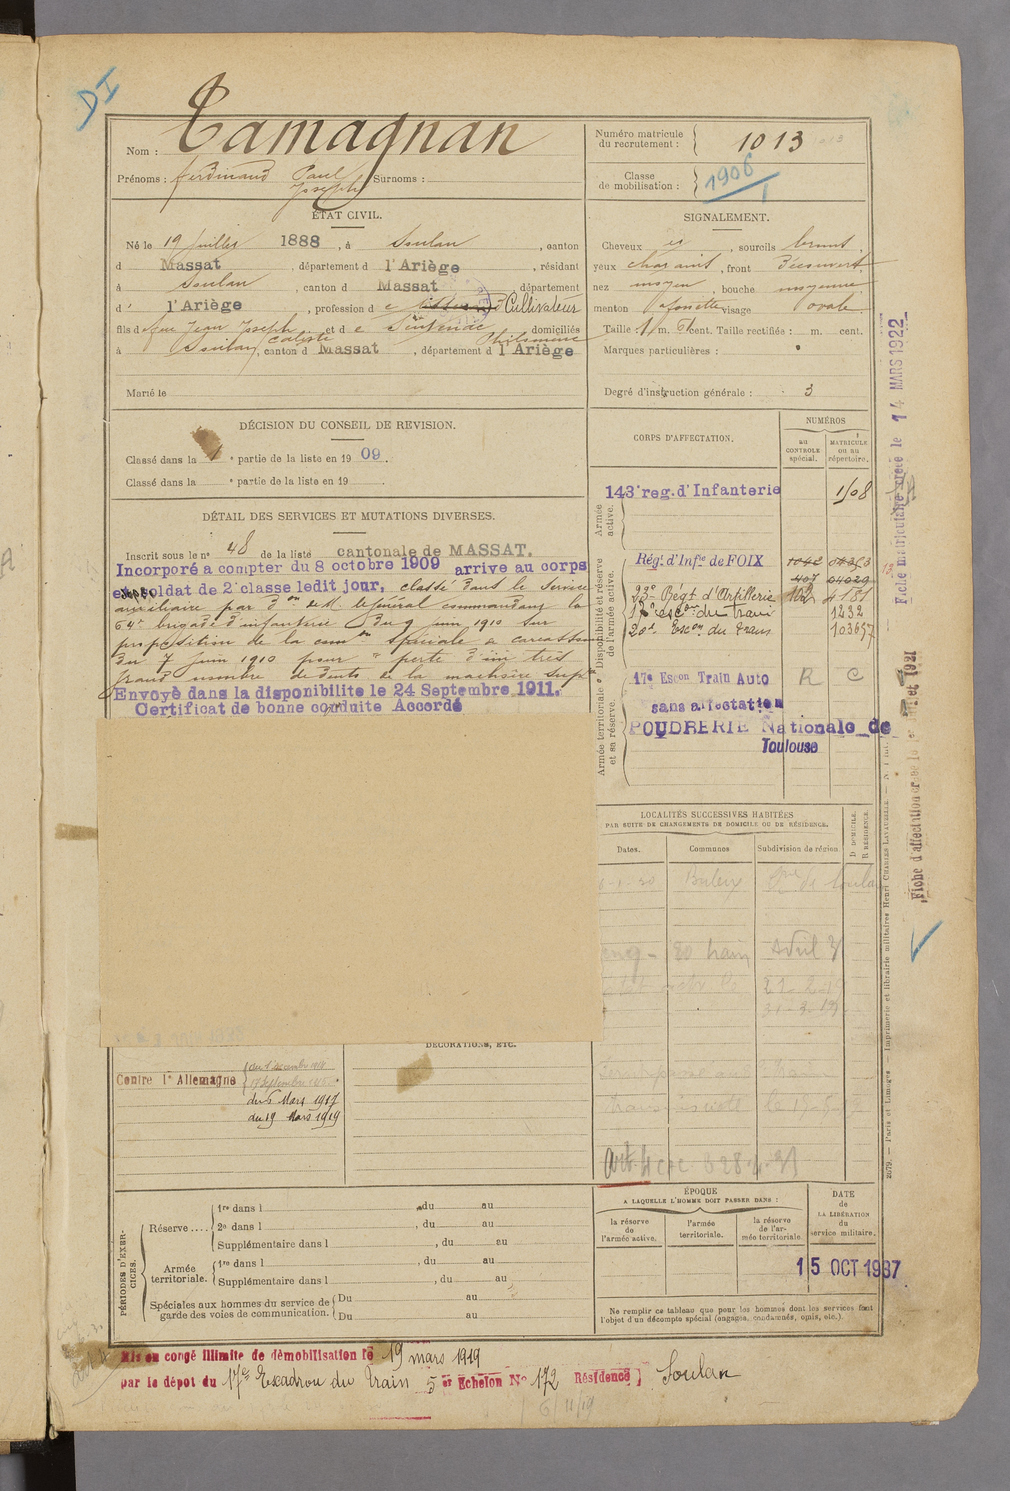 DI
Nom : Tamagnan
Prénoms : ferdinand Paul Joseph Surnoms :
Numéro matricule du recrutement : 1013
Classe de mobilisation : 1906
ÉTAT CIVIL.
Né le 19 juillet 1888, à Soulan, canton
d Massat, département d l'Ariège, résidant
à Soulan, canton d Massat département
d' l'Ariège, profession d e Cultivateur
fils de feu Jean Joseph et d e Sentenac domiciliés
Caliste Philomène
à Soulan, canton d Massat, département d l'Ariège
Marié le
SIGNALEMENT.
Cheveux et, sourcils bruns.
yeux, front Découvert
nez moyen, bouche moyenne
menton à fossette visage ovale.
Taille 1 m. cent. Taille rectifiée : m. cent.
Marques particulières :
Degré d'instruction générale : 3
DÉCISION DU CONSEIL DE REVISION.
Classé dans la 1e partie de la liste en 1909.
Classé dans la e partie de la liste en 19 .
DÉTAIL DES SERVICES ET MUTATIONS DIVERSES.
Inscrit sous le n° 48 de la liste cantonale de MASSAT.
Incorporé a compter du 8 octobre 1909 arrive au corps
et soldat de 2e classe ledit jour, classé dans le service
auxiliaire par d on de M. le général commandant la
64e brigade d'infanterie du 9 juin 1910 sur
proposition de la com on spéciale de Carcassonne
du 7 juin 1910 pour " perte d'un très
grand nombre de dents de la machoire sup re
Envoyé dans la disponibilite le 24 Septembre 1911.
Certificat de bonne conduite Accordé
CORPS D'AFFECTATION.
NUMÉROS
au CONTROLE spécial.
MATRICULE ou au répertoire.
Armée active.
143e reg. d'Infanterie 1508
Disponibilité et réserve de l'armée active.
Rég. d'Inf ie de FOIX
23e Régt d'Artillerie 102 4181
17e esc on du train 1232
20e Esc on du Train 103657
Armée territoriale et sa réserve.
17e Escon Train Auto R C
sans affectation
POUDRERIE Nationale de
Toulouse
LOCALITÉS SUCCESSIVES HABITÉES
PAR SUITE DE CHANGEMENTS DE DOMICILE OU DE RÉSIDENCE.
Dates.
Communes
Subdivision de région.
D. DOMICILE.
R. RÉSIDENCE.
DÉCORATIONS, ETC.
Contre l'Allemagne
du 5 Mars 1917
du 19 Mars 1919
PÉRIODES D'EXERCICES.
Réserve .... 1re dans l , du au
2e dans l , du au
Supplémentaire dans l , du au
Armée territoriale. 1re dans l , du au
Supplémentaire dans l , du au
Spéciales aux hommes du service de garde des voies de communication. Du au
Du au
ÉPOQUE
A LAQUELLE L'HOMME DOIT PASSER DANS :
la réserve de l'armée active.
l'armée territoriale.
la réserve de l'armée territoriale.
DATE de LA LIBÉRATION du service militaire.
15 OCT 1937
Ne remplir ce tableau que pour les hommes dont les services font
l'objet d'un décompte spécial (engagés, condamnés, omis, etc.).
Mis en congé illimité de démobilisation le 19 mars 1919
par le dépot du 17e Escadron du Train 5e Echelon N° 172 Résidence] Soulan
Fiche matriculaire créée le 14 MARS 1922
2079. — Paris et Limoges. — Imprimerie et librairie militaires Henri CHARLES-LAVAUZELLE.